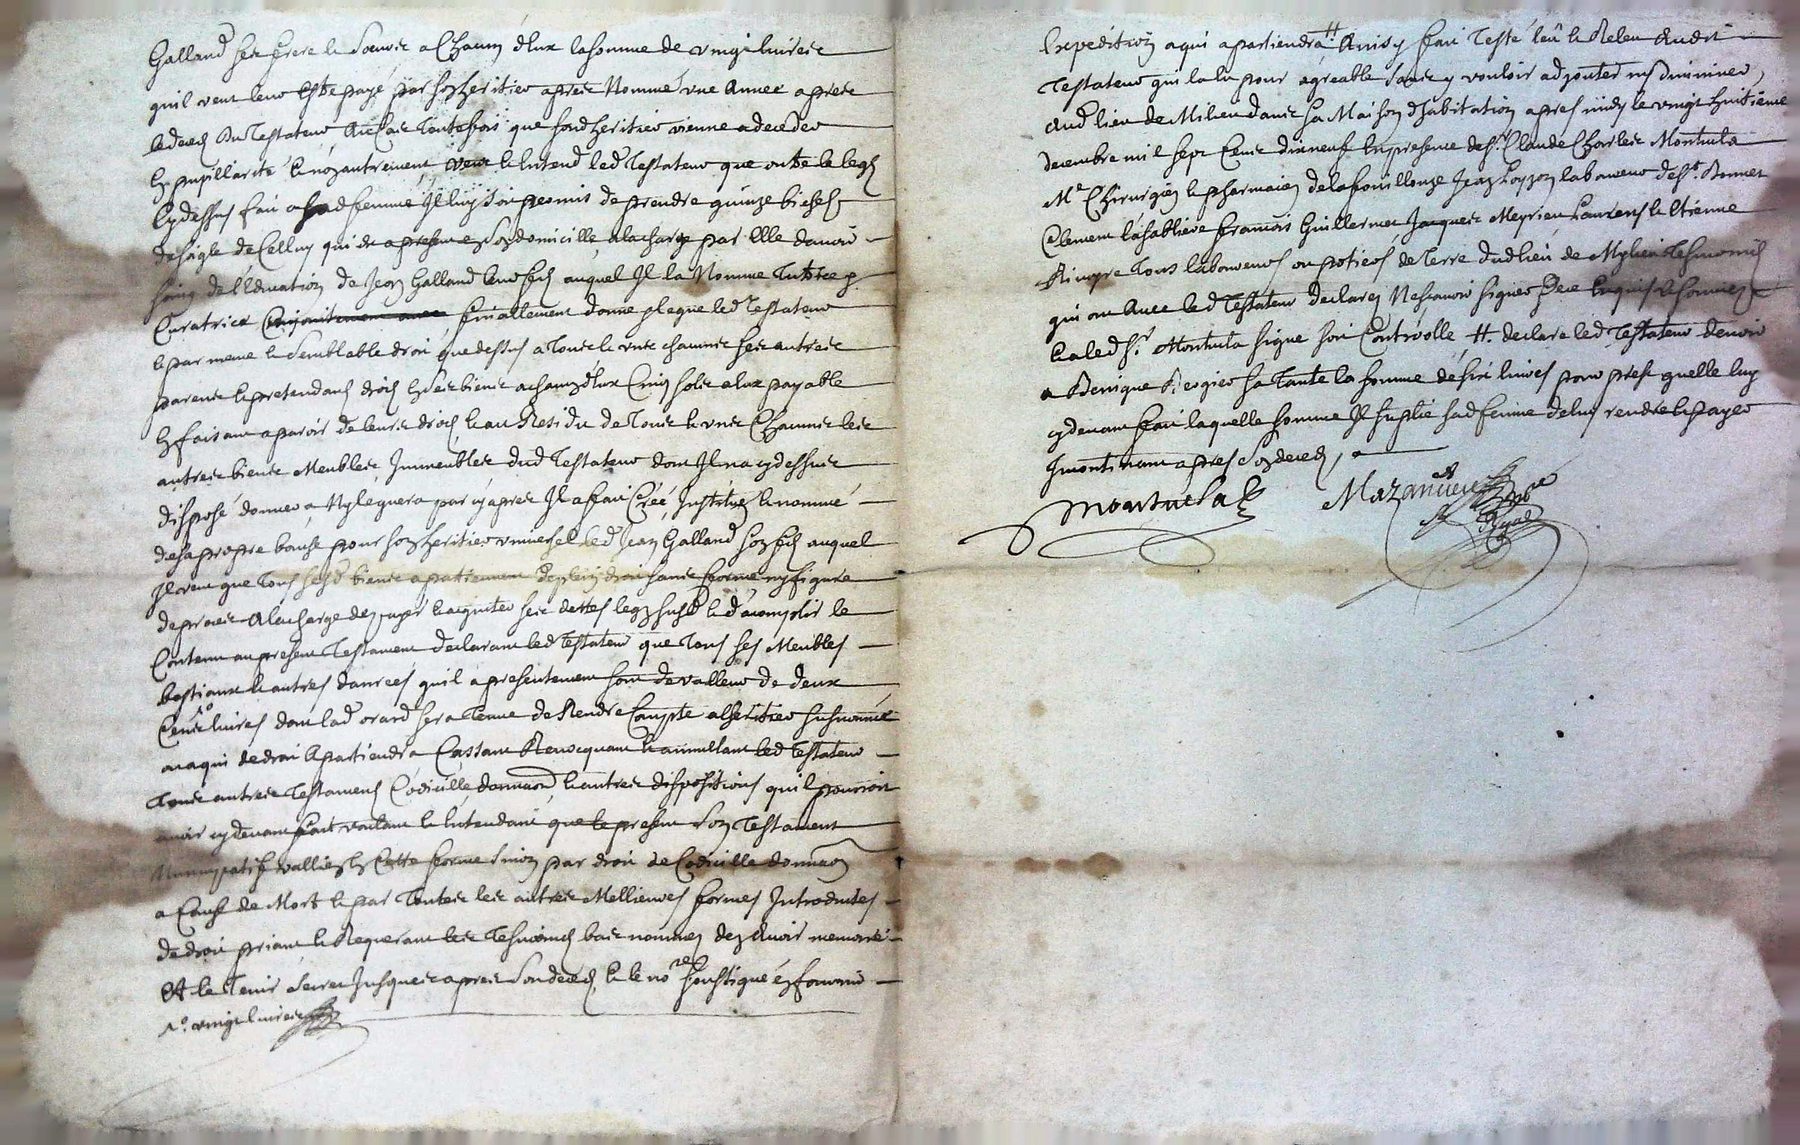 Galland ses frere et soeurs a Chacun d'Eux la somme de vingt livres
quil veut leur Estre payé par son heritier apres Nommé une Année apres
le deces du Testateur Au Cas Toutefois que son d heritier vienne a deceder
En pupillarité et non autrement veut et Entend led Testateur que outre le legs
Cy dessus fait a sad femme Il luy soit permis de prendre quinze bichets
de seigle de Celluy qui de a present en son domicille a la charge par Elle d'avoir
soing de l'Education de Jean Galland leur fils auquel Il la Nomme Tutrice &
Curatrice finallement donne et legue led Testateur
et par meme et semblable droit que dessus a Tous et uns chacuns ses autres
parents et pretendants droits En ses biens a chacun d'Eux Cinq sols a Eux payable
En faisant aparoir de leurs droits Et au Residu de Tous et uns Chacuns ses
autres biens Meubles Immeubles dud Testateur dont Il n'a cy dessus
disposé donné ny leguera par cy apres Il a fait Créé, Institué et nommé
de sa propre bouche pour son heritier universel led Jean Galland son fils auquel
Il veut que Tous sesd biens apartiennent de plein droit sans forme ny figure
de proces A la charge de payer et acquitter ses dettes legs susd et d'acomplir le
Contenu au present Testament declarant led Testateur que Tous ses Meubles
bestiaux et autres danrées quil a presentement sont de valleur de deux
Cents livres dont lad sera Tenue de Rendre Compte a l'heritier susnommé
ou a qui de droit Apartiendra Cassant Revocquant et annullant led Testateur
Tous autres Testaments Codicille, donnaon, et autres dispositions quil pourroit
avoir cy devant fait voulant et Entendant que le present son Testament
Nuncupatif vallie En Cette forme sinon par droit de Codicille donnaon
a Cause de Mort et par Toutes les autres Mellieures formes Introduites
de droit priant et Requerant les Tesmoins bas nommez d'en Avoir memoire
Et le Tenir secret Jusques apres son deces, et le nore soustigné En fournir
vingt livres
Expedition a qui apartiendra # Ainsy fait Testé leu et Releu Audit
Testateur qui l'a eu pour agreable sans y vouloir adjouter ny diminuer,
Aud lieu de Milieu dans sa Maison d'habitation apres midy le vingt huitième
decembre mil sept Cents dixneuf En presence de sr. Claude Charles Montucla
Me. Chirurgien et pharmacien de la fouillouze Jean Loyzon laboureur de st. Bonnet
Clement lasabliere francois Guillermet Jacques Meyrieu Laurens et Etienne
Tous laboureurs ou potiers de Terre dud lieu de Mylieu Tesmoins
qui ont Avec led Testateur declarez Ne scavoir signer de ce Enquis et sommez
Et a led sr. Montucla signé soit Controolle, #. declare led Testateur devoir
a Benigne sa Tante la somme de six livres pour prest quelle luy
cy devant fait laquelle somme Il suplie sad femme de luy rendre et payer
Incontinant apres son deces,
Montucla
Mazancieu